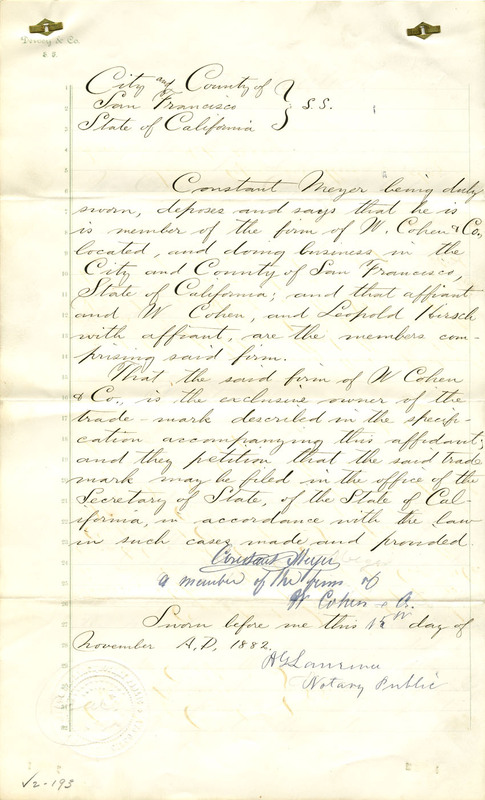 Dewey & Co.
City and County of
San Francisco } S.S.
State of California
Constant Meyer being duly
sworn, deposes and says that he is
is member of the firm of W. Cohen & Co.,
located, and doing business in the
City and County of San Francisco,
State of California; and that affiant
and W Cohen, and Leopold Hirsch
with affiant, are the members com-
prising said firm.
That, the said firm of W Cohen
& Co., is the exclusive owner of the
trade-mark described in the specifi-
cation accompanying this affidavit;
and they petition that the said trade
mark may be filed in the office of the
Secretary of State, of the State of Cal-
ifornia, in accordance with the law
in such cases made and provided.
Constant Meyer
a member of the firm of
W Cohen & Co.
Sworn before me this 15th day of
November A.D. 1882.
Notary Public
√2-193